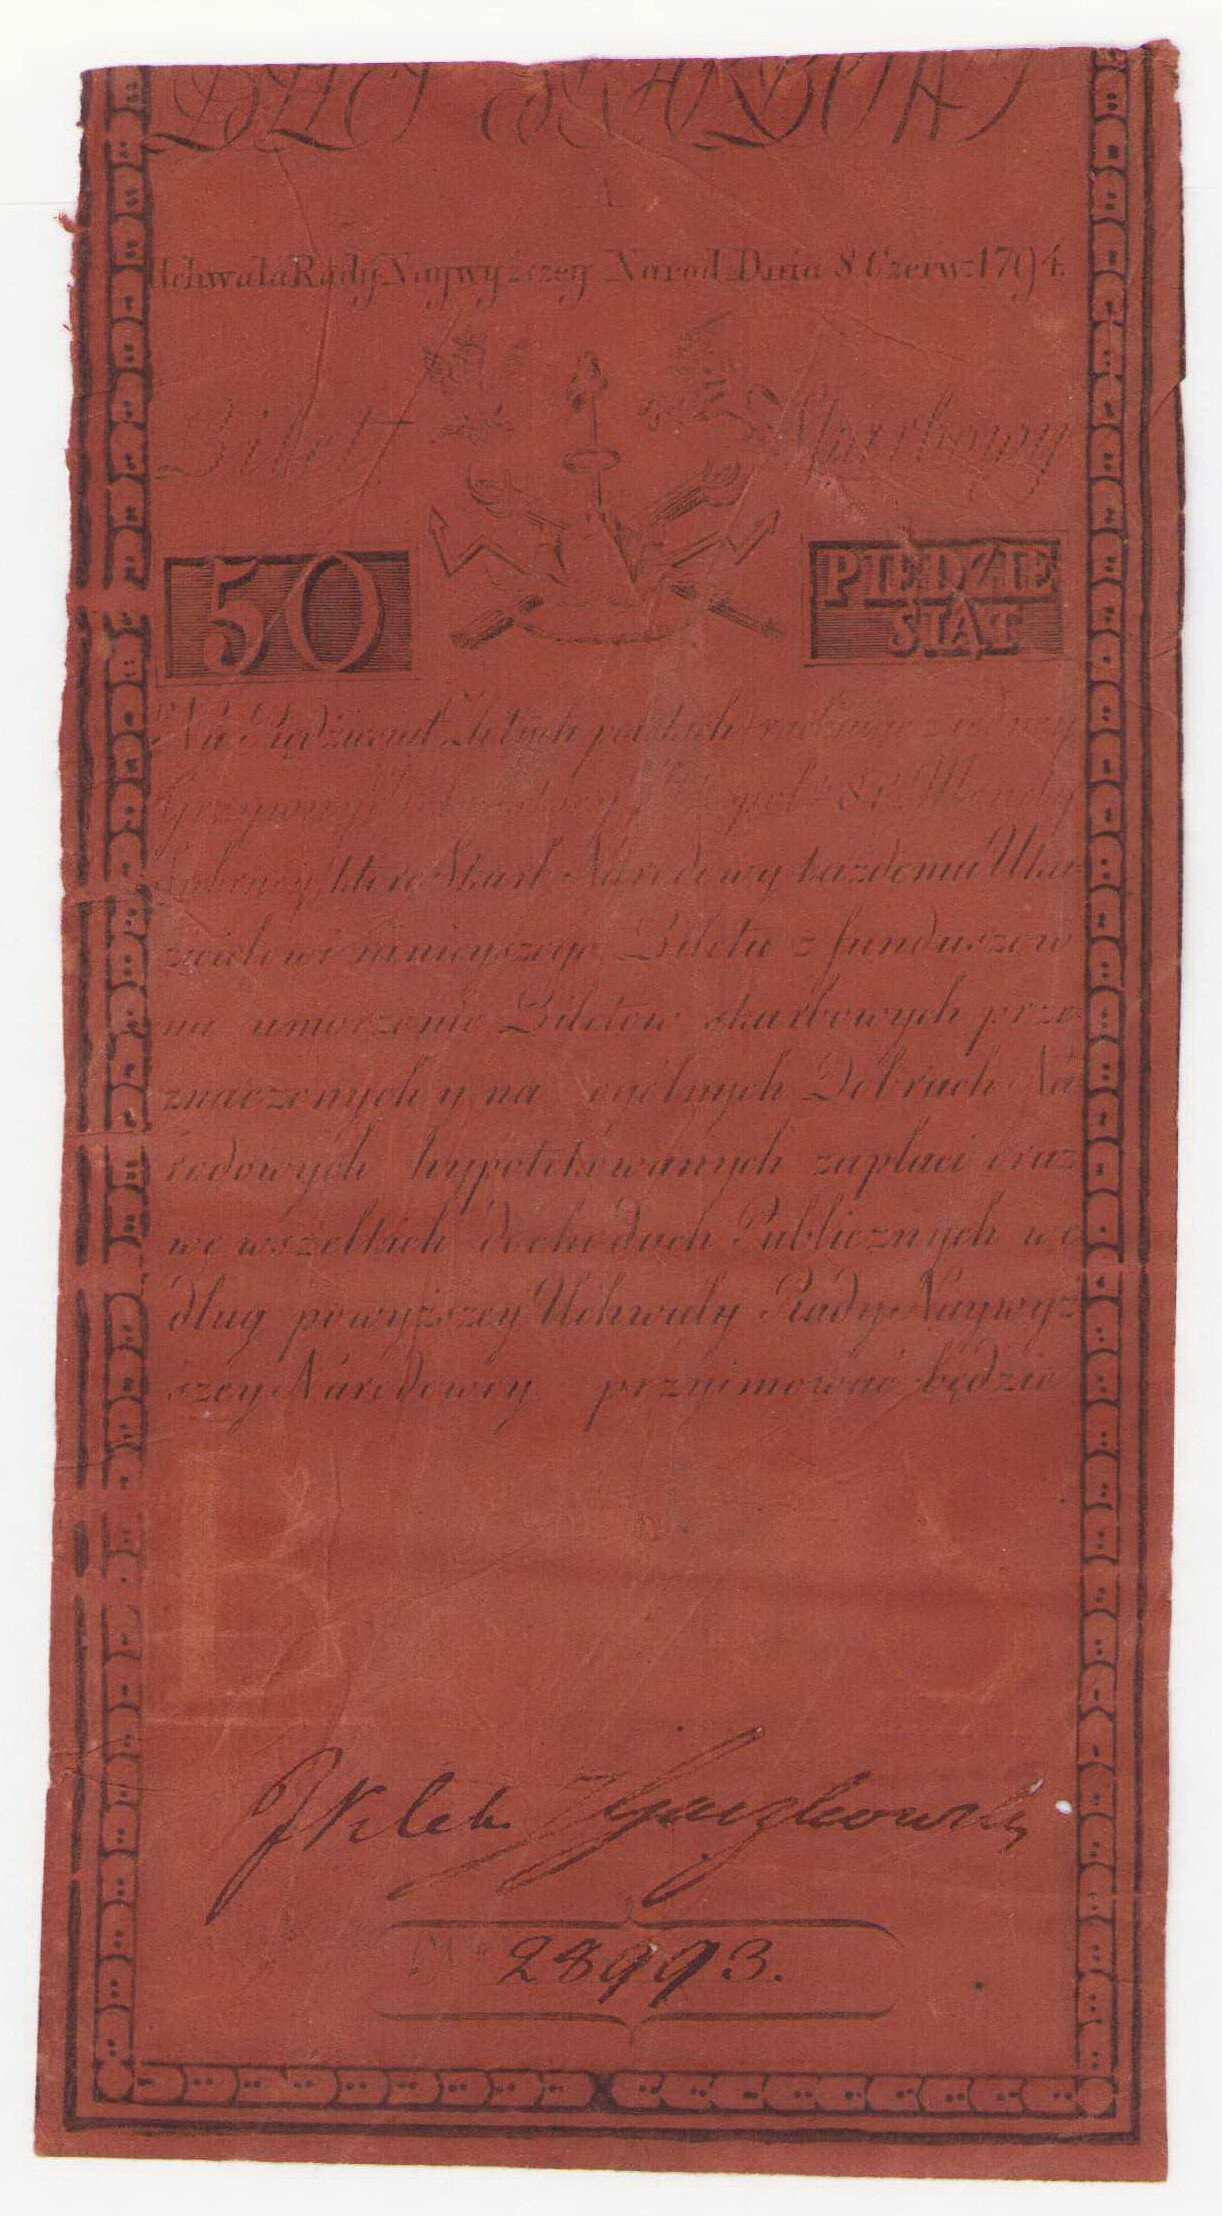 Uchwała Rady Naywyższey Narod. Dnia 8 Czerw: 1794.
Bilet Skarbowy
50 PIĘDZIE SIĄT
Na Piędziesiąt Złotych polskich rachuiąc z iedney
Grzywny
ktorą Skarb Narodowy każdemu Uka-
zicielowi ninieyszego Biletu z funduszow
na umorzenie Biletow skarbowych prze-
znaczonych y na ogólnych Dobrach Na
rodowych hypotekowanych zapłaci oraz
we wszelkich dochodach Publicznych we
dług powyższey Uchwały Rady Naywyż
szey Narodowey przyimować będzie
28993.